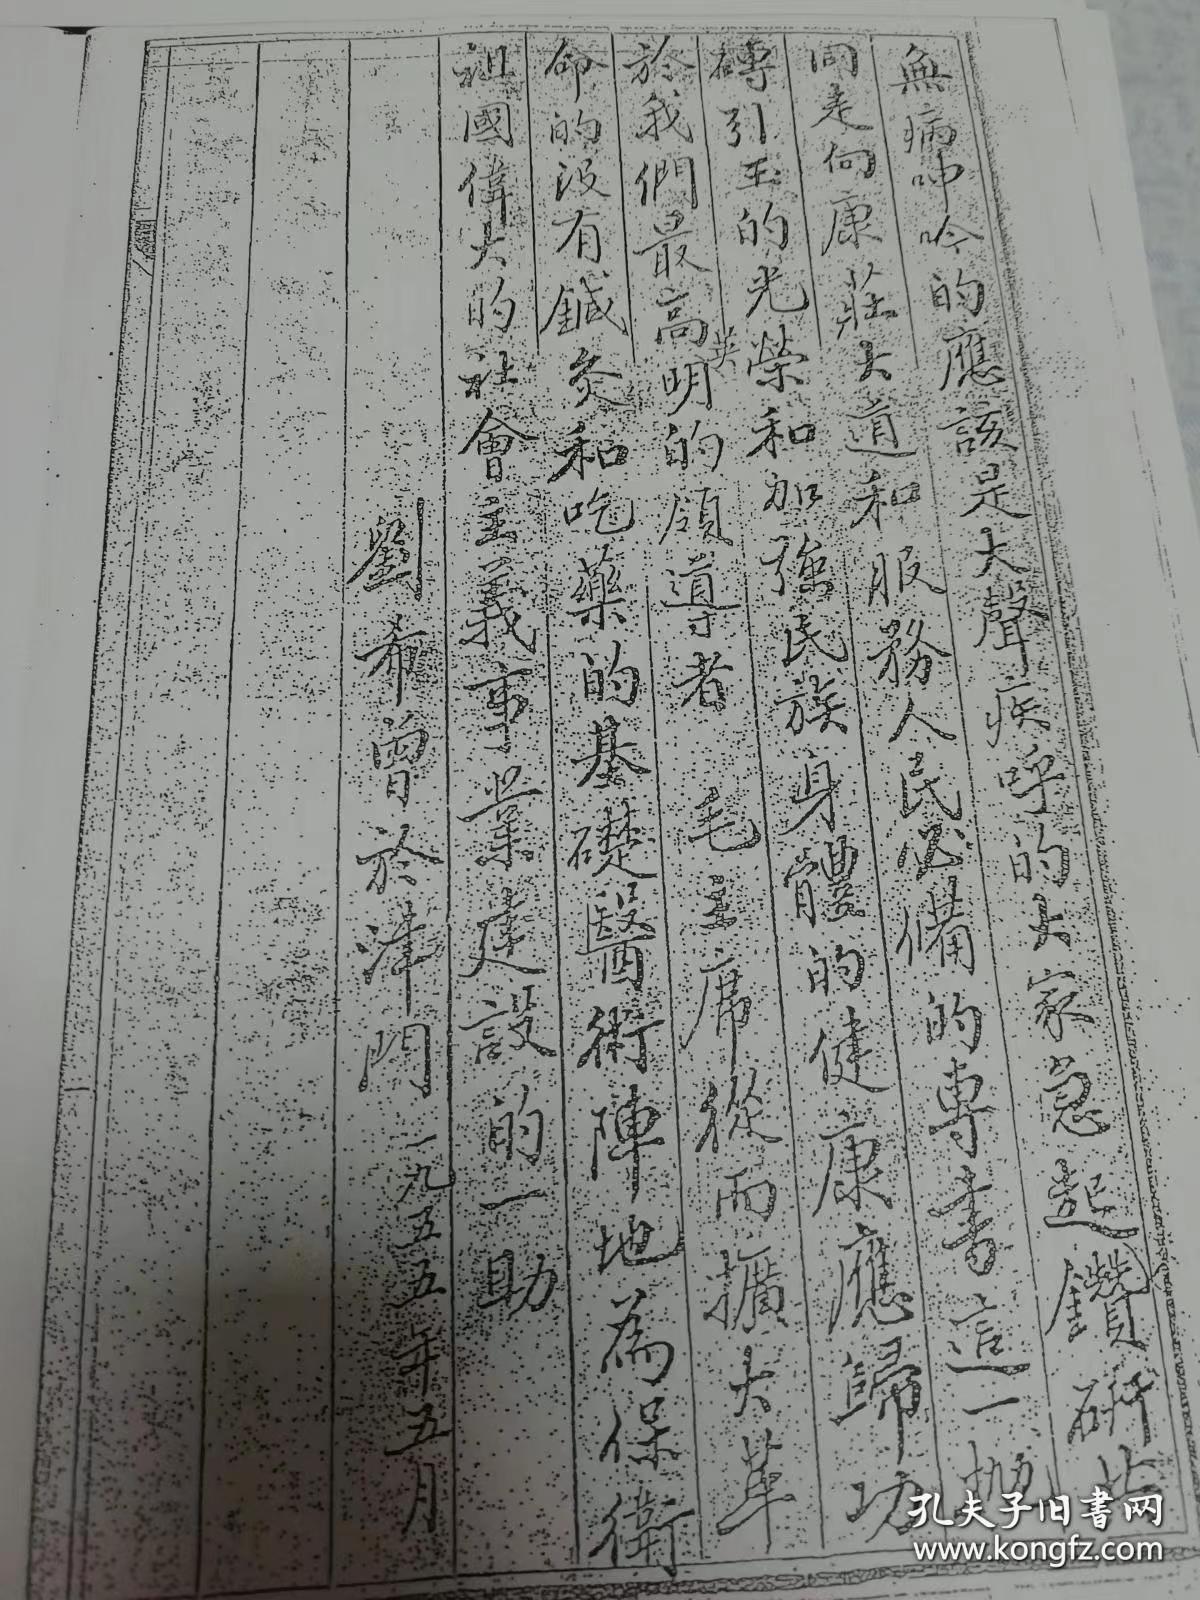 無病呻吟的應該是大聲疾呼的大家急起鑽研此
同走向康莊大道和服務人民必備的專書這一抛
磚引玉的光榮和加强民族身體的健康應歸功
於我們最高英明的領導者 毛主席從而擴大革
命的没有鍼灸和吃藥的基礎醫術陣地為保衛
祖國偉大的社會主義事業建設的一助
劉希曾於津門 一九五五年五月
孔夫子旧书网
www.kongfz.com